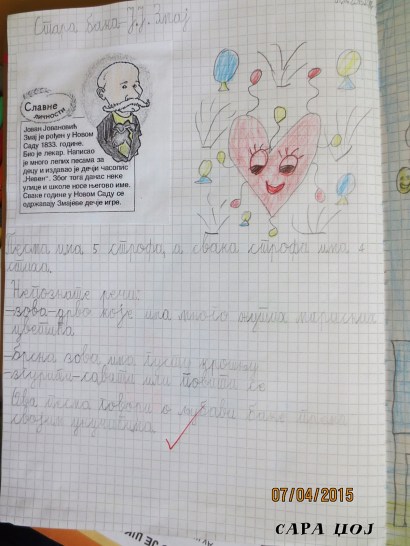 Стара бака - Ј.Ј. Змај
Славне
личности
Јован Јовановић
Змај је рођен у Новом
Саду 1833. године.
Био је лекар. Написао
је много лепих песама за
децу и издавао је дечји часопис
„Невен". Због тога данас неке
улице и школе носе његово име.
Сваке године у Новом Саду се
одржавају Змајеве дечје игре.
Песма има 5 строфа, а свака строфа има 4
стиха.
Непознате речи:
-зова-дрво које има много ситних мирисних
цветића
зова има густу крошњу
-журити-
Ова песма говори о љубави баке према
својим унучићима.
07/04/2015
САРА ЦОЈ